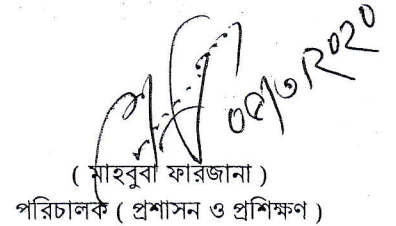 ০৫/৩/২০২০
( মাহবুবা ফারজানা )
পরিচালক ( প্রশাসন ও প্রশিক্ষণ )